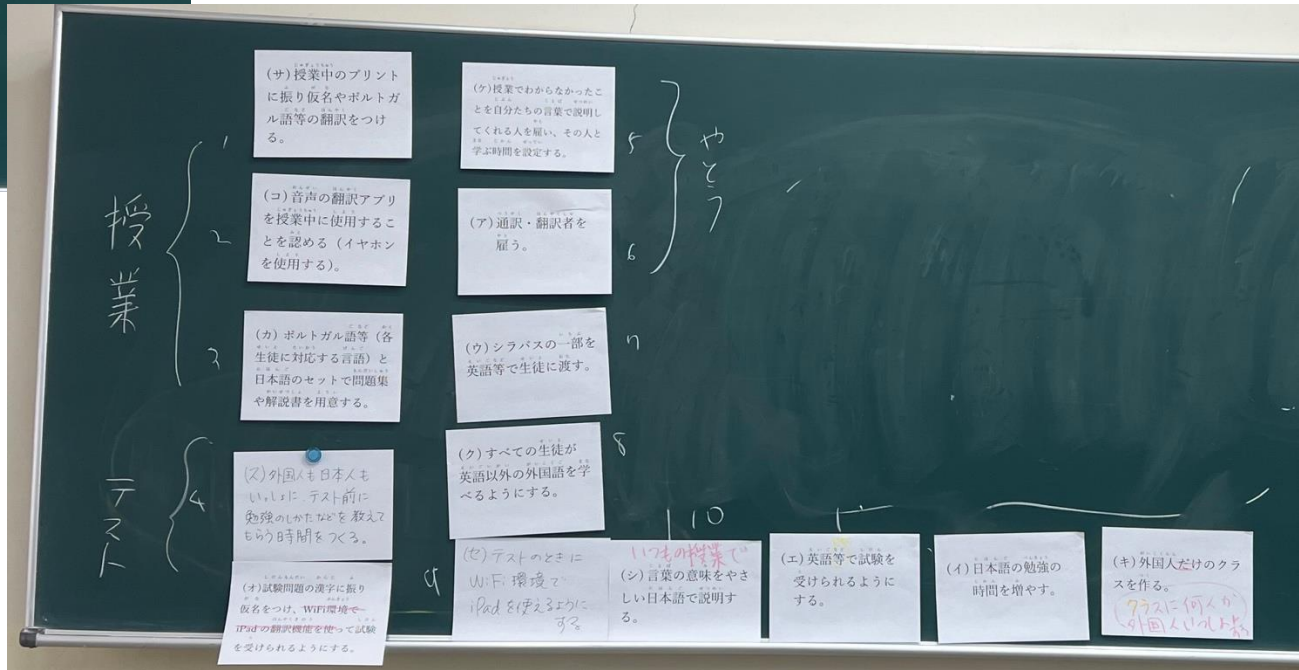 授業
1
(サ)授業中のプリント
に振り仮名やポルトガ
ル語等の翻訳をつけ
る。
2
(コ)音声の翻訳アプリ
を授業中に使用するこ
とを認める(イヤホン
を使用する)。
3
(カ)ポルトガル語等(各
生徒に対応する言語)と
日本語のセットで問題集
や解説書を用意する。
テスト
4
(ス)外国人も日本人も
いっしょに、テスト前に
勉強のしかたなどを教えて
もらう時間をつくる。
(オ)試験問題の漢字に振り
仮名をつけ、WiFi環境で
iPadの翻訳機能を使って試験
を受けられるようにする。
(ケ)授業でわからなかったこ
とを自分たちの言葉で説明し
てくれる人を雇い、その人と
学ぶ時間を設定する。
5
(ア)通訳・翻訳者を
雇う。
6
やとう
(ウ)シラバスの一部を
英語等で生徒に渡す。
7
(ク)すべての生徒が
英語以外の外国語を学
べるようにする。
8
9
(セ)テストのときに
WiFi環境で
iPadを使えるように
する。
10
いつもの授業で
(シ)言葉の意味をやさ
しい日本語で説明す
る。
(エ)英語等で試験を
受けられるようにす
る。
(イ)日本語の勉強の
時間を増やす。
(キ)外国人だけのクラ
スを作る。
クラスに何人か